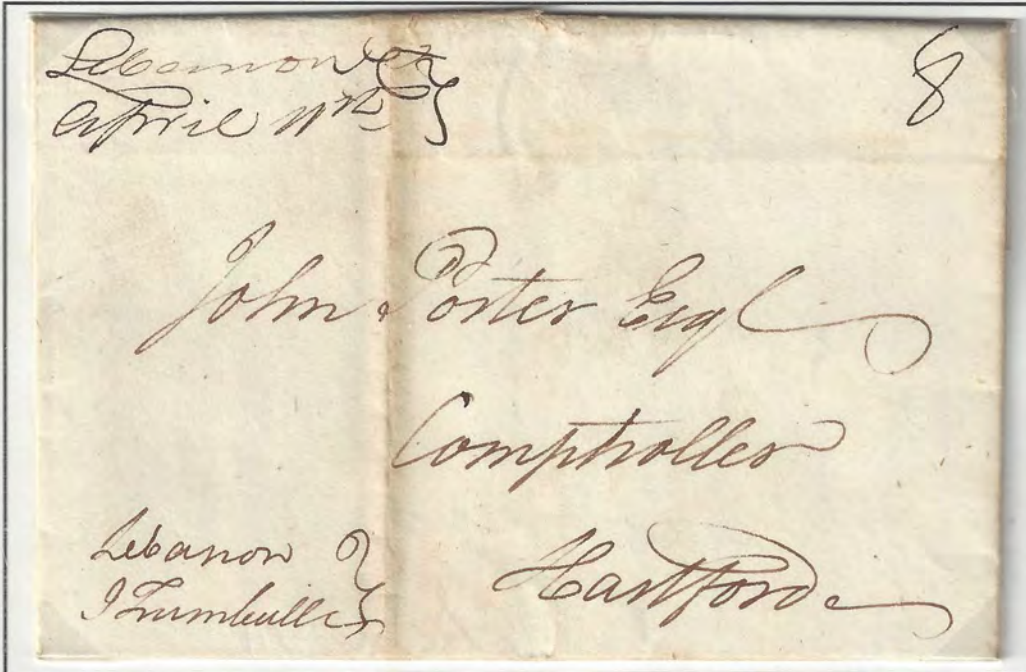 Lebanon Ct
April 11th
8
John Porter Esq
Comptroller
Hartford
Lebanon
J Trumbull